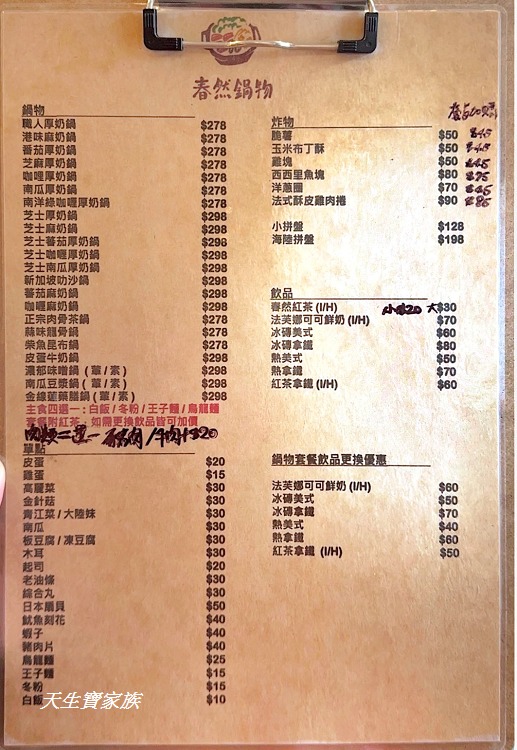 春然鍋物
鍋物
職人厚奶鍋 $278
港味麻奶鍋 $278
番茄厚奶鍋 $278
芝麻厚奶鍋 $278
咖哩厚奶鍋 $278
南瓜厚奶鍋 $278
南洋綠咖哩厚奶鍋 $278
芝士厚奶鍋 $298
芝士麻奶鍋 $298
芝士蕃茄厚奶鍋 $298
芝士咖哩厚奶鍋 $298
芝士南瓜厚奶鍋 $298
新加坡叻沙鍋 $298
蕃茄麻奶鍋 $298
咖哩麻奶鍋 $298
正宗肉骨茶鍋 $278
蒜味雞骨鍋 $278
柴魚昆布鍋 $278
皮蛋牛奶鍋 $298
濃郁味噌鍋 ( 葷 / 素 ) $298
南瓜豆漿鍋 ( 葷 / 素 ) $298
金線蓮藥膳鍋 ( 葷 / 素 ) $298
主食四選一 : 白飯 / 冬粉 / 王子麵 / 烏龍麵
套餐附紅茶 : 如需更換飲品皆可加價
肉類二選一 豬肉 / 牛肉+$20
單點
皮蛋 $20
雞蛋 $15
高麗菜 $30
金針菇 $30
青江菜 / 大陸妹 $30
南瓜 $30
板豆腐 / 凍豆腐 $30
木耳 $30
起司 $20
老油條 $30
綜合丸 $30
日本扇貝 $50
魷魚刻花 $40
蝦子 $40
豬肉片 $40
烏龍麵 $25
王子麵 $15
冬粉 $15
白飯 $10
炸物
脆薯 $50 $45
玉米布丁酥 $50 $45
雞塊 $50 $45
西西里魚塊 $80 $75
洋蔥圈 $70 $65
法式酥皮雞肉捲 $90 $85
小拼盤 $128
海陸拼盤 $198
飲品
春然紅茶 (I/H) 小$20 大$30
法芙娜可可鮮奶 (I/H) $70
冰磚美式 $60
冰磚拿鐵 $80
熱美式 $50
熱拿鐵 $70
紅茶拿鐵 (I/H) $60
鍋物套餐飲品更換優惠
法芙娜可可鮮奶 (I/H) $60
冰磚美式 $50
冰磚拿鐵 $70
熱美式 $40
熱拿鐵 $60
紅茶拿鐵 (I/H) $50
天生寶家族